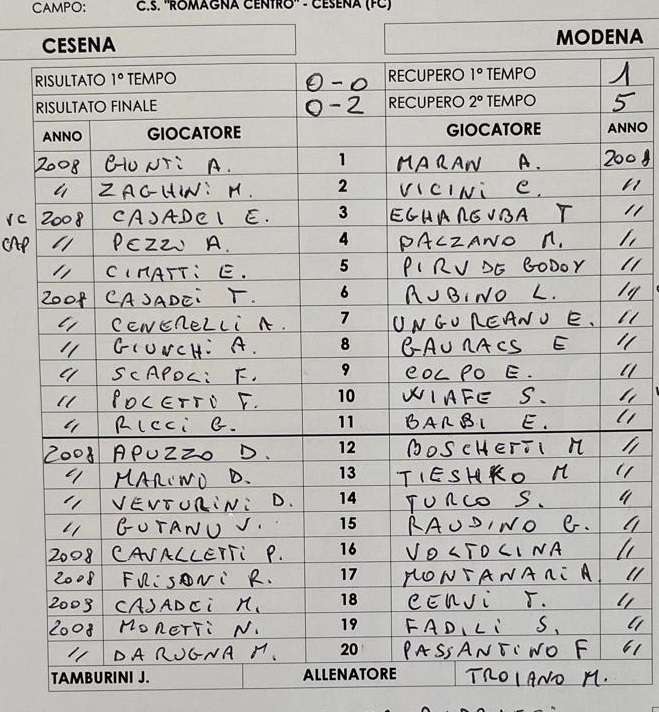 CAMPO: C.S. "ROMAGNA CENTRO" - CESENA (FC)
CESENA MODENA
RISULTATO 1° TEMPO 0-0 RECUPERO 1° TEMPO 1
RISULTATO FINALE 0-2 RECUPERO 2° TEMPO 5
ANNO GIOCATORE GIOCATORE ANNO
2008 GIUNTI A. 1 MARAN A. 2008
" ZAGHINI M. 2 VICINI C. "
VC 2008 CASADEI E. 3 EGHAREVBA T "
CAP " PEZZO A. 4 DALZANO M. "
" CIMATTI E. 5 PIRV DE GODOY "
2008 CASADEI T. 6 RUBINO L. "
" CENERELLI A. 7 UNGUREANU E. "
" GIUNCHI A. 8 GAURACS E "
" SCAPOLI F. 9 COLPO E. "
" POLETTI F. 10 WIAFE S. "
" RICCI G. 11 BARBI E. "
2008 APUZZO D. 12 BOSCHETTI M "
" MARINO D. 13 TIESHKO M "
" VENTURINI D. 14 TURCO S. "
" GUTANU V. 15 RAUDINO G. "
2008 CAVALLETTI P. 16 VOLTOLINA "
2008 FRISONI R. 17 MONTANARI A "
2009 CASADEI M. 18 CERVI T. "
2008 MORETTI N. 19 FADILI S. "
" DARUGNA M. 20 PASSANTINO F "
TAMBURINI J. ALLENATORE TROIANO M.